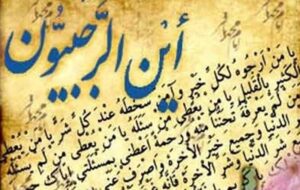 أين الرجبيون
يا من أرجوه لكل خير وآمن سخطه عند كل شر يا من يعطي
الكثير بالقليل يا من يعطي من سئله يا من يعطي من لم
لم يعرفه تحننا منه ورحمة أعطني بمسئلتي إياك
الدنيا وجميع خير الآخرة واصرف
الدنيا وشر الآخرة فإنه